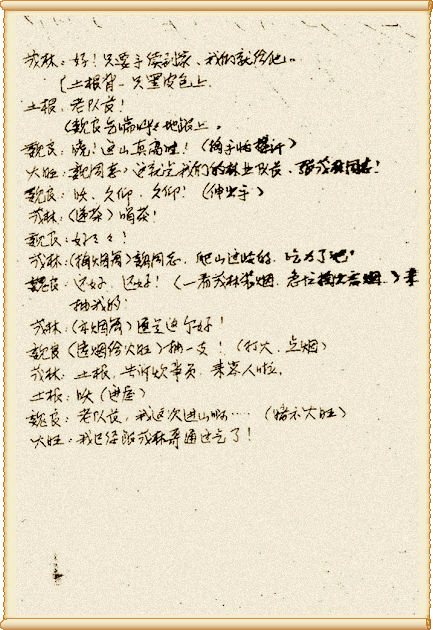 茂林：好！只要手续到家、我们就给他。
（土根背一只黑皮包上
土根：老队长！
（魏良气喘吁吁地跟上。
魏良：哦！这山真高哇！（掏手帕擦汗）
大旺：魏同志，这就是我们的林业队长、张茂林同志！
魏良：哎、久仰、久仰！（伸出手）
茂林：（递茶）喝茶！
魏良：好好好！
茂林：（掏烟筒）魏同志，爬山过岭的，吃力了吧！
魏良：还好、还好！（一看茂林装烟，急忙掏出香烟。）来
抽我的！
茂林：（示烟筒）还是这个好！
魏良（递烟给大旺）抽一支！（打火、点烟）
茂林：土根，告诉炊事员，来客人啦。
土根：哎（进屋）
魏良：老队长，我这次进山啊……（暗示大旺）
大旺：我已经跟茂林哥通过气了！